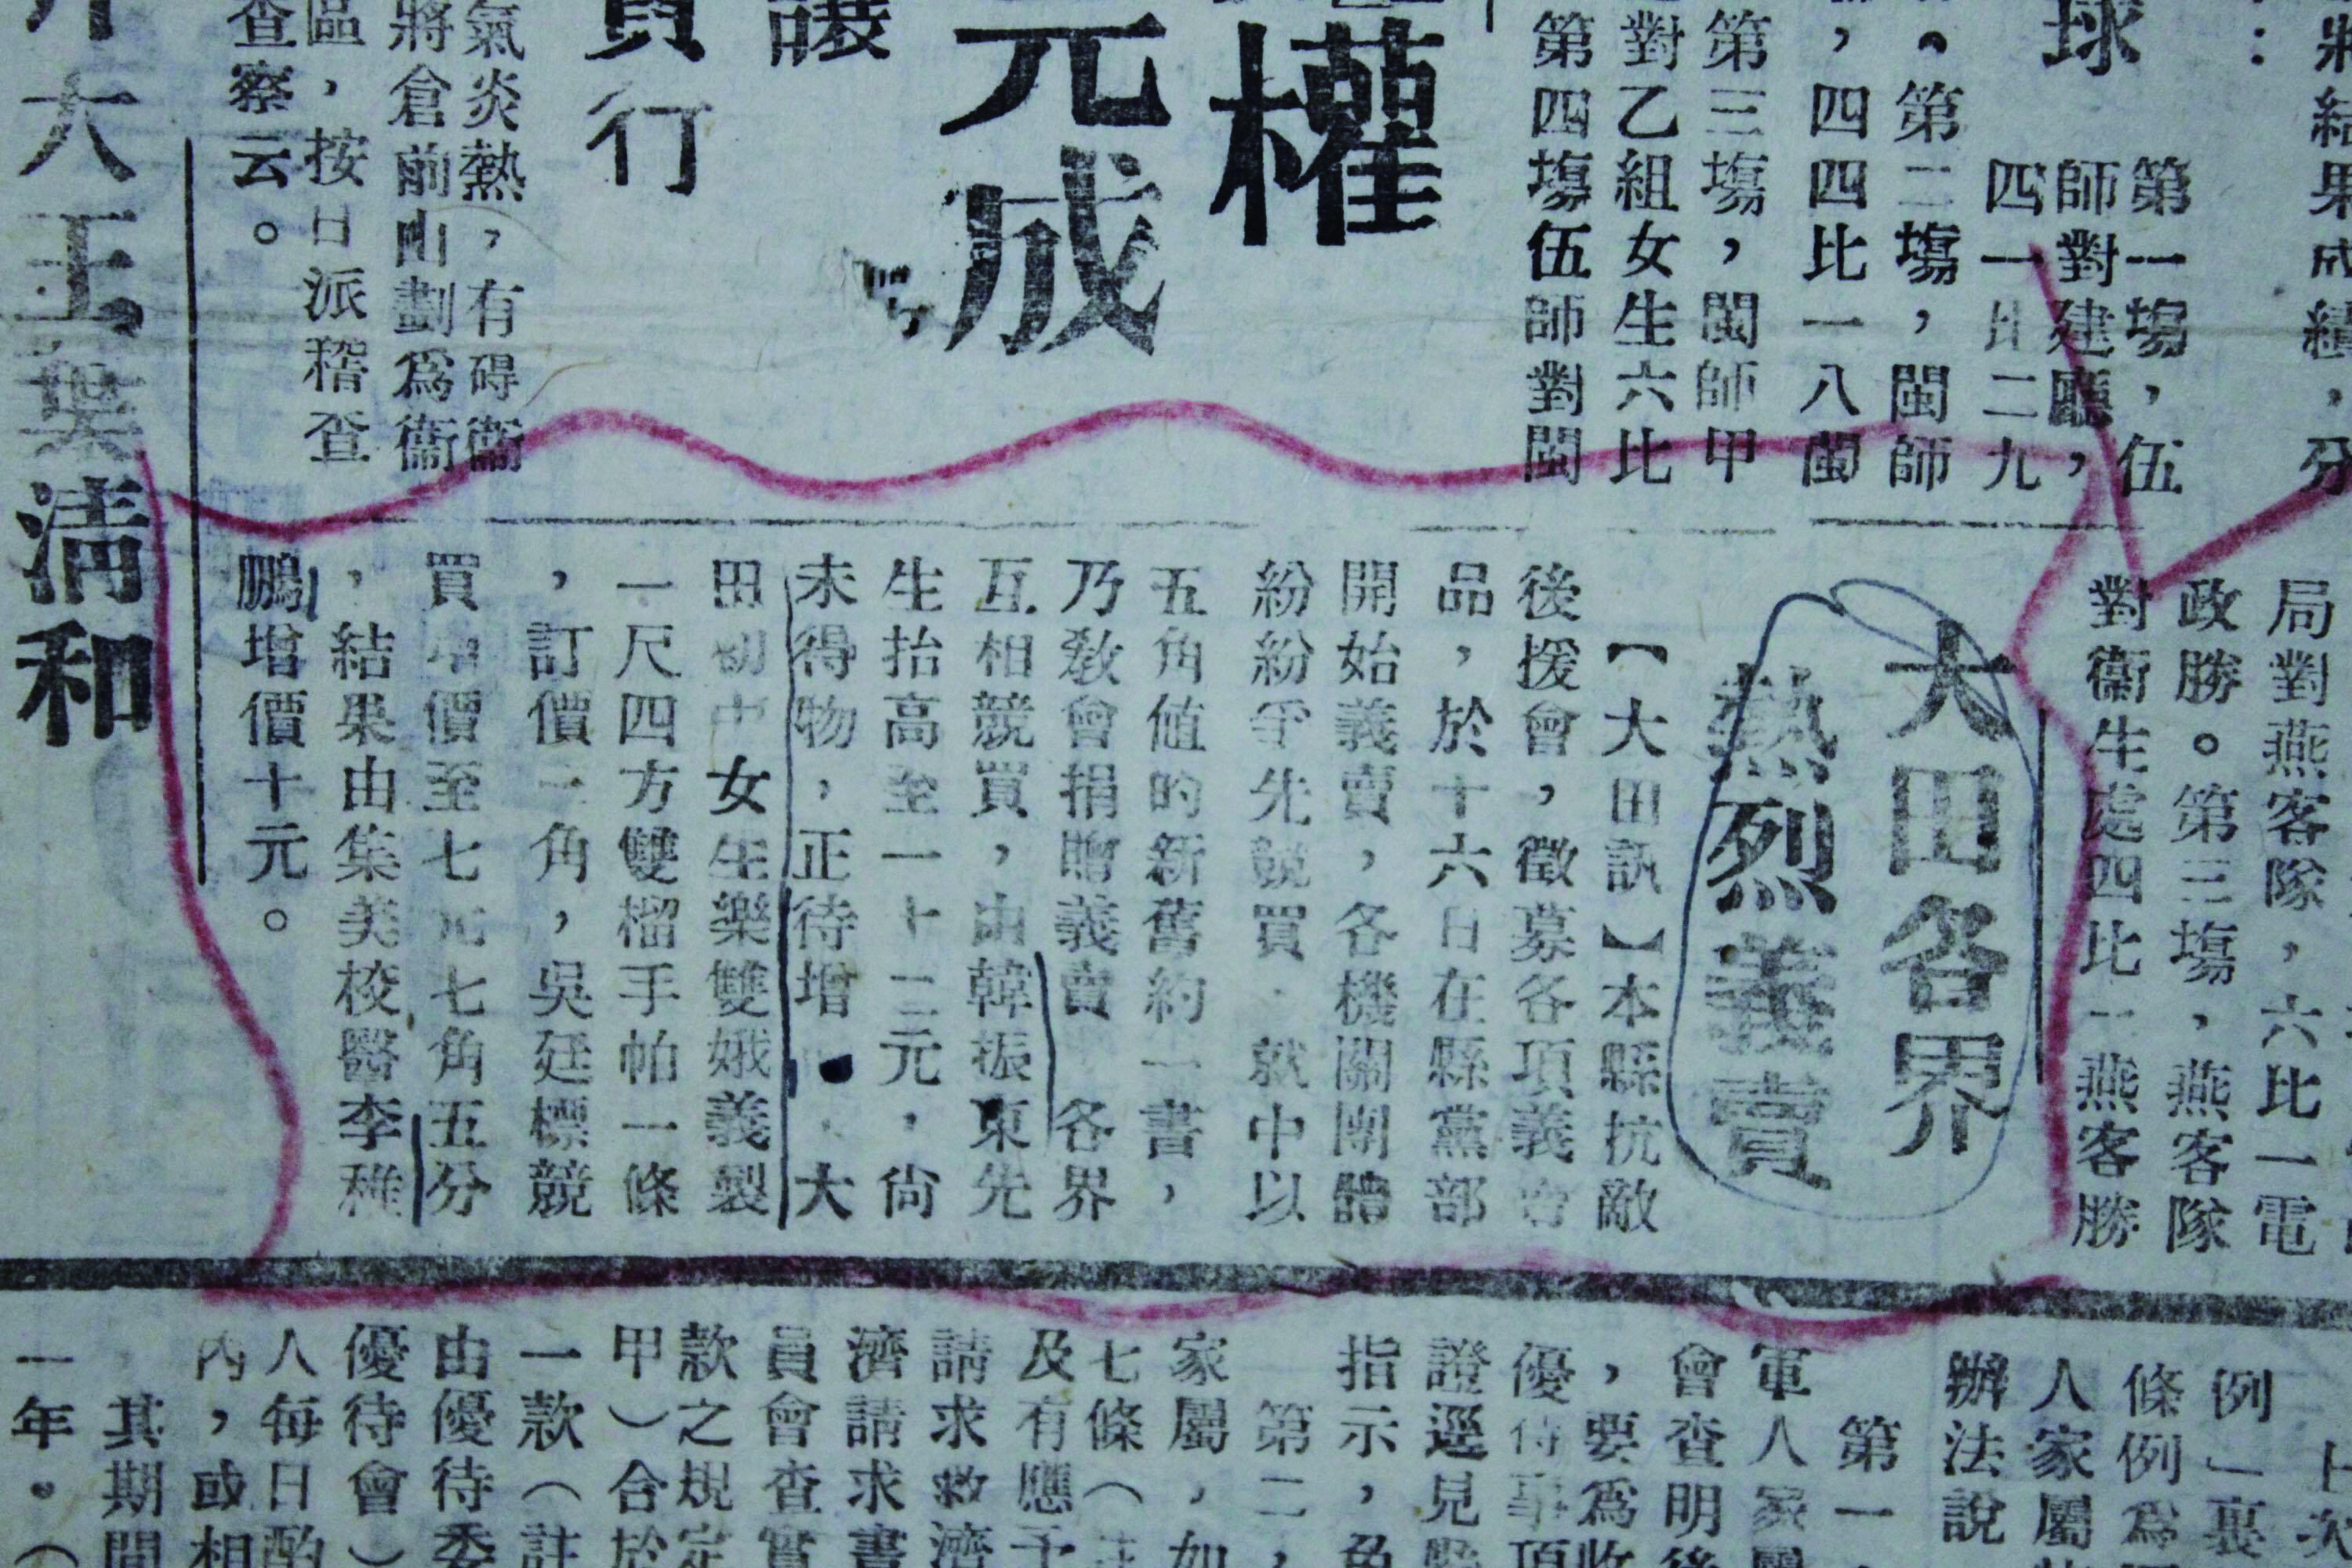 將
結果成績，分
球
第一塲，伍
師對建廳，
四一比二九
。第二塲，閩師
，四四比一八閩
第三塲，閩師甲
對乙組女生六比
第四塲伍師對閩
權
元成
讓
貿行
氣炎熱，有碍衞
將倉前山劃爲衞
區，按日派稽查
查察云。
大王葉清和
局對燕客隊，六比一電
政勝。第三塲，燕客隊
對衞生處四比一燕客勝
大田各界
熱烈義賣
【大田訊】本縣抗敵
後援會，徵募各項義賣
品，於十六日在縣黨部
開始義賣，各機關團體
紛紛爭先競買．就中以
五角値的新舊約一書，
乃教會捐贈義賣 各界
互相競買，由韓振東先
生抬高至一十二元，尙
未得物，正待增 ．大
田初中女生樂雙娥義製
一尺四方雙榴手帕一條
，訂價二角，吳廷標競
買 價至七元七角五分
，結果由集美校醫李稚
鵬增價十元。
例」裏
條例爲
人家屬
辦法說
第一
軍人家屬
會查明後
，要爲收
優待事項
證逕見縣
指示，免
第二，
家屬，如
七條（註
及有應予
請求救濟
濟請求書
員會查實
款之規定
甲）合於
一款（註
由優待委
優待會）
人每日酌
內，或相
其期間
一年。（